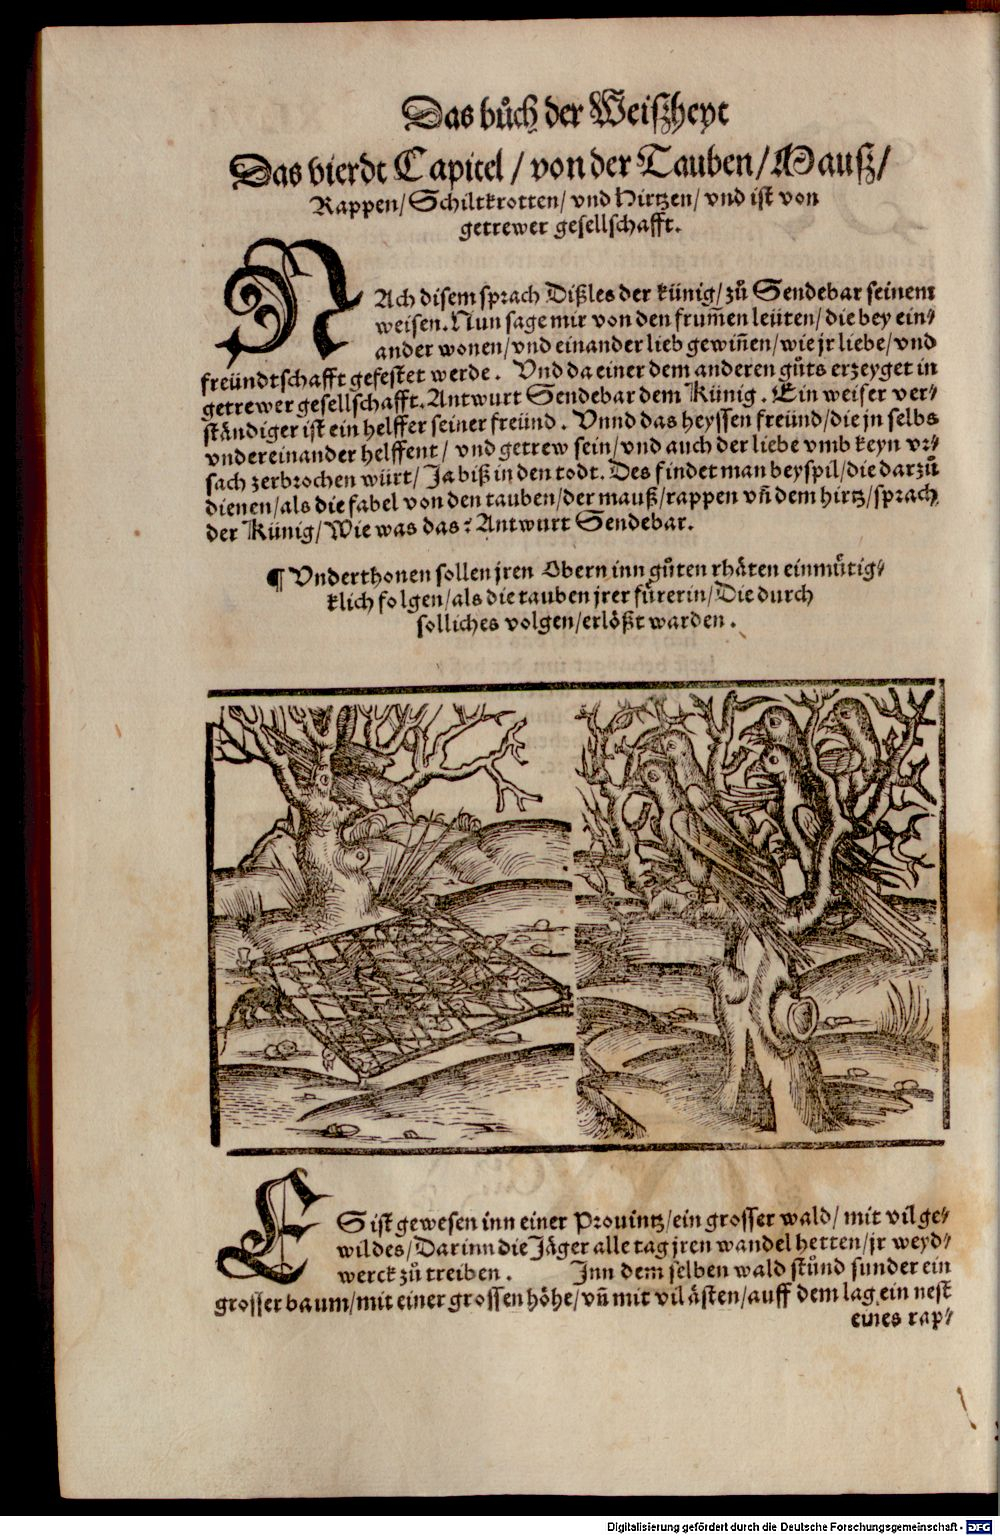 Das bůch der Weißheyt
Das vierdt Capitel / von der Tauben / Mauß /
Rappen / Schiltkrotten / vnd Hirtzen / vnd ist von
getrewer gesellschafft.
NAch disem sprach Dißles der künig / zů Sendebar seinem
weisen. Nun sage mir von den frum̃en leüten / die bey ein⸗
ander wonen / vnd einander lieb gewiñen / wie jr liebe / vnd
freündtschafft gefestet werde. Vnd da einer dem anderen gůts erzeyget in
getrewer gesellschafft. Antwurt Sendebar dem Künig. Ein weiser ver⸗
ständiger ist ein helffer seiner freünd. Vnnd das heyssen freünd / die jn selbs
vndereinander helffent / vnd getrew sein / vnd auch der liebe vmb keyn vr⸗
sach zerbrochen würt / Ja biß in den todt. Des findet man beyspil / die darzů
dienen / als die fabel von den tauben / der mauß / rappen vñ dem hirtz / sprach
der Künig / Wie was das? Antwurt Sendebar.
¶ Vnderthonen sollen jren Obern inn gůten rhäten einmütig⸗
klich folgen / als die tauben jrer fürerin / Die durch
solliches volgen / erlößt warden.
ES ist gewesen inn einer Prouintz / ein grosser wald / mit vil ge⸗
wildes / Darinn die Jäger alle tag jren wandel hetten / jr weyd⸗
werck zů treiben. Inn dem selben wald stůnd sunder ein
grosser baum / mit einer grossen höhe / vñ mit vil ästen / auff dem lag ein nest
eines rap⸗
Digitalisierung gefördert durch die Deutsche Forschungsgemeinschaft - DFG